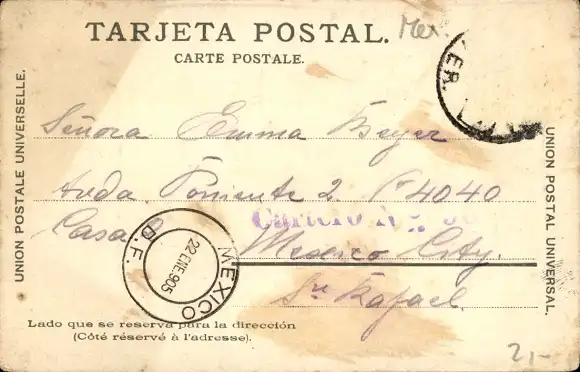 TARJETA POSTAL.
Mex.
CARTE POSTALE.
VER.
UNION POSTALE UNIVERSELLE.
UNION POSTAL UNIVERSAL.
Señora Emma Beyer
Avda. Poniente 2. 4040
Cartero No.
Casa
Mexico City.
Sn Rafael.
MEXICO
D.F.
22 ENE 905
Lado que se reserva para la dirección
(Côté réservé à l'adresse).
2,-